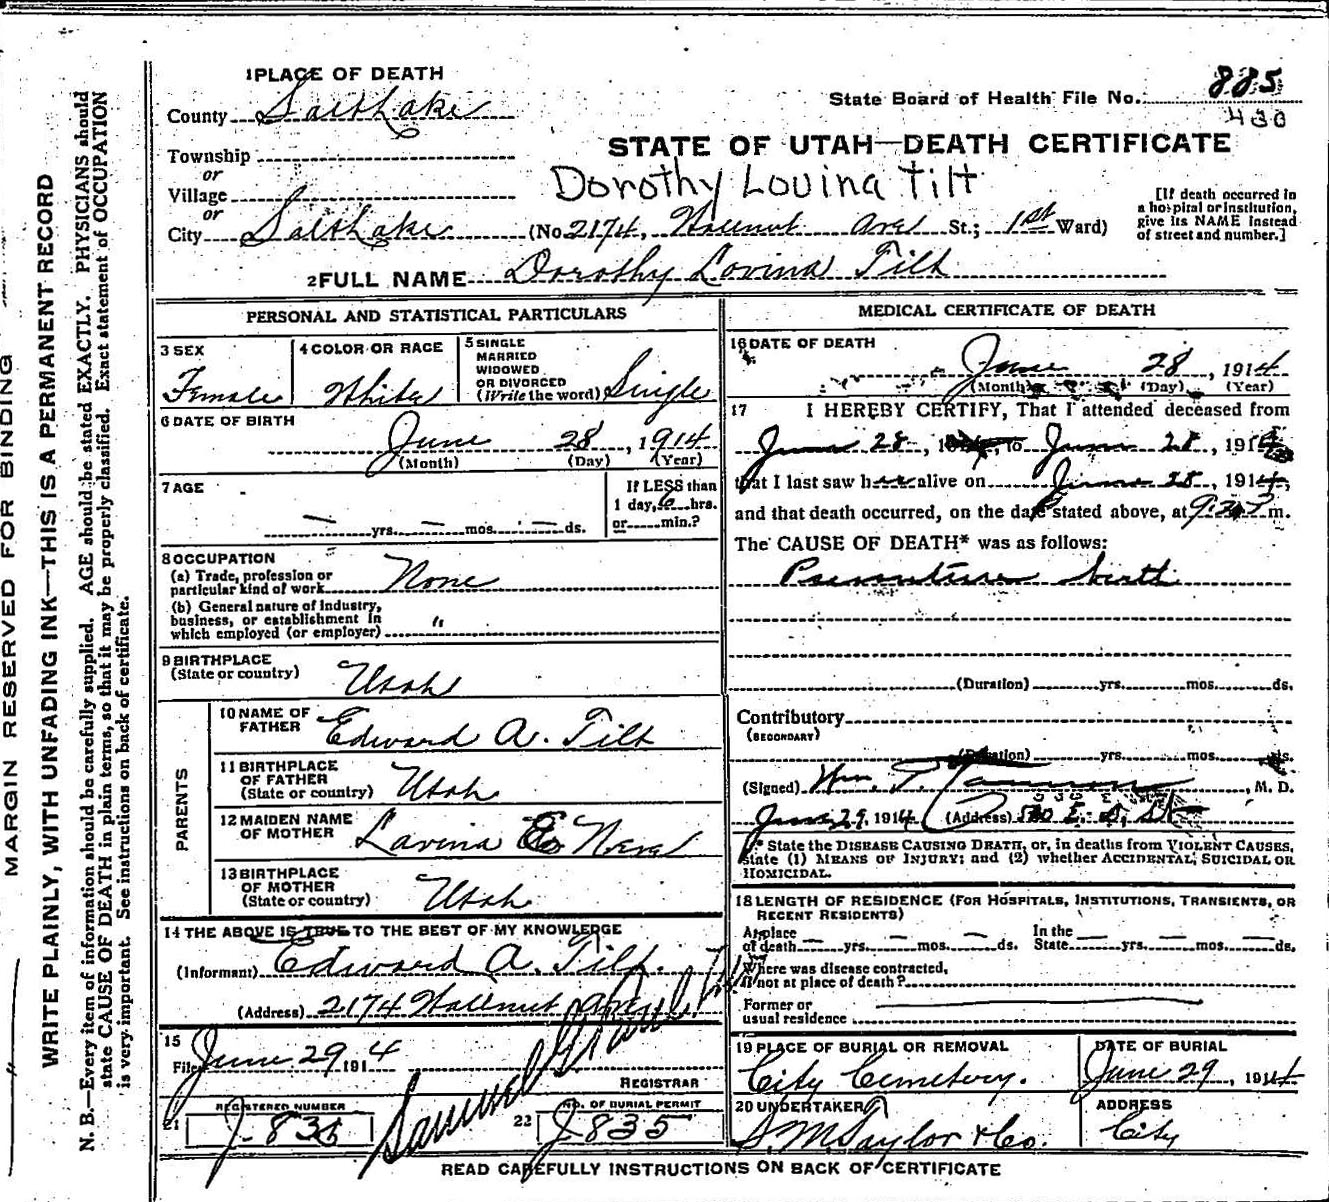 MARGIN RESERVED FOR BINDING
WRITE PLAINLY, WITH UNFADING INK—THIS IS A PERMANENT RECORD
N. B.—Every item of information should be carefully supplied. AGE should be stated EXACTLY. PHYSICIANS should
state CAUSE OF DEATH in plain terms, so that it may be properly classified. Exact statement of OCCUPATION
is very important. See instructions on back of certificate.
1 PLACE OF DEATH
County Salt Lake
Township
or
Village
or
City Salt Lake
State Board of Health File No. 885
430
STATE OF UTAH—DEATH CERTIFICATE
Dorothy Louina Tilt
(No. 2174, Ave St.; 1st Ward)
[If death occurred in
a hospital or institution,
give its NAME instead
of street and number.]
2 FULL NAME Dorothy Lovina Tilt
PERSONAL AND STATISTICAL PARTICULARS
3 SEX
Female
4 COLOR OR RACE
White
5 SINGLE
MARRIED
WIDOWED
OR DIVORCED
(Write the word) Single
6 DATE OF BIRTH
June 28, 1914
(Month) (Day) (Year)
7 AGE
— yrs. — mos. — ds.
If LESS than
1 day, 6 hrs.
or min.?
8 OCCUPATION
(a) Trade, profession or
particular kind of work None
(b) General nature of industry,
business, or establishment in
which employed (or employer) "
9 BIRTHPLACE
(State or country) Utah
PARENTS
10 NAME OF
FATHER Edward A. Tilt
11 BIRTHPLACE
OF FATHER
(State or country) Utah
12 MAIDEN NAME
OF MOTHER Lavina
13 BIRTHPLACE
OF MOTHER
(State or country) Utah
14 THE ABOVE IS TRUE TO THE BEST OF MY KNOWLEDGE
(Informant) Edward A. Tilt.
(Address) 2174 Ave
15
Filed June 29 1914
Samuel
REGISTRAR
21 REGISTERED NUMBER
J-835
22 NO. OF BURIAL PERMIT
J-835
MEDICAL CERTIFICATE OF DEATH
16 DATE OF DEATH
June 28, 1914
(Month) (Day) (Year)
17 I HEREBY CERTIFY, That I attended deceased from
June 28, to June 28, 1914
that I last saw her alive on June 28, 1914,
and that death occurred, on the date stated above, at m.
The CAUSE OF DEATH* was as follows:
Premature birth
(Duration) yrs. mos. ds.
Contributory
(SECONDARY)
(Duration) yrs. mos. ds.
(Signed) Wm. T. , M. D.
June 29, 1914 (Address)
* State the DISEASE CAUSING DEATH, or, in deaths from VIOLENT CAUSES,
state (1) MEANS OF INJURY; and (2) whether ACCIDENTAL, SUICIDAL OR
HOMICIDAL.
18 LENGTH OF RESIDENCE (FOR HOSPITALS, INSTITUTIONS, TRANSIENTS, OR
RECENT RESIDENTS)
At place
of death — yrs. — mos. — ds. In the
State — yrs. — mos. — ds.
Where was disease contracted,
if not at place of death?
Former or
usual residence
19 PLACE OF BURIAL OR REMOVAL
City Cemetery.
DATE OF BURIAL
June 29, 1914
20 UNDERTAKER
S. M. Taylor & Co.
ADDRESS
City
READ CAREFULLY INSTRUCTIONS ON BACK OF CERTIFICATE